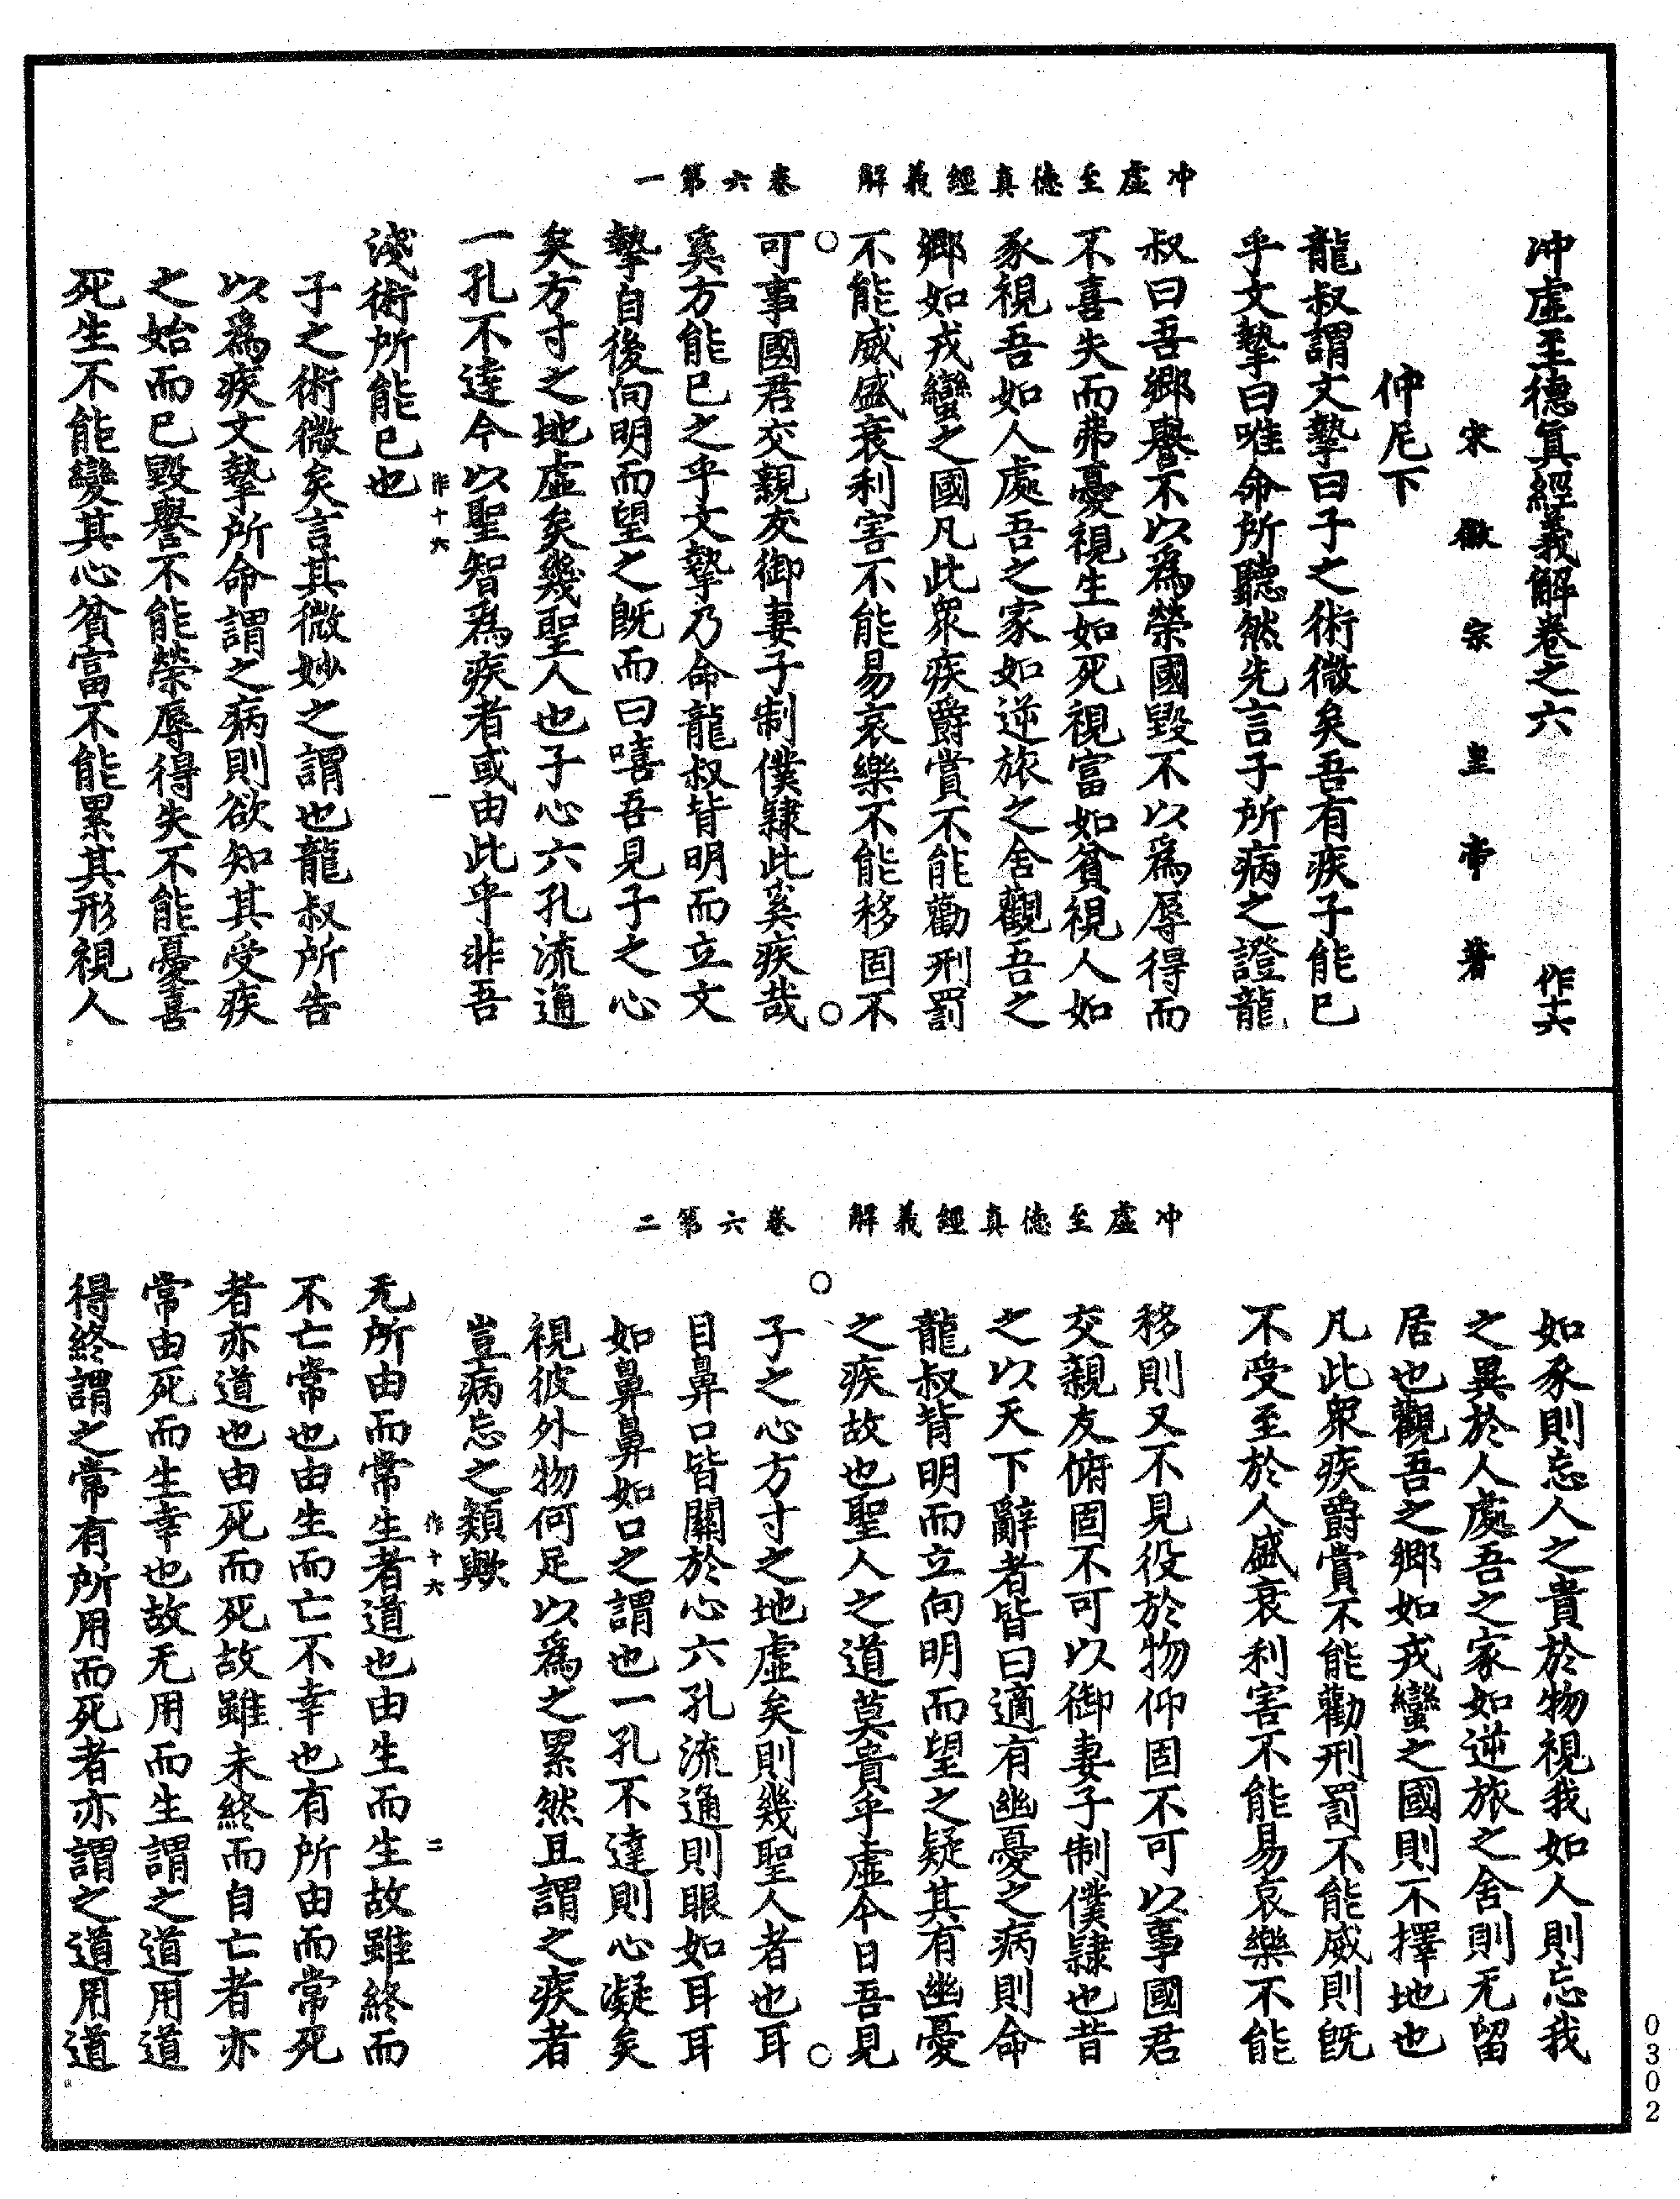 冲虛至德真經義解 卷六第一
冲虛至德真經義解卷之六 作十六
宋徽宗皇帝著
仲尼下
龍叔謂文摯曰子之術微矣吾有疾子能已
乎文摯曰唯命所聽然先言子所病之證龍
叔曰吾鄉譽不以為榮國毀不以為辱得而
不喜失而弗憂視生如死視富如貧視人如
豕視吾如人處吾之家如逆旅之舍觀吾之
鄉如戎蠻之國凡此衆疾爵賞不能勸刑罰
不能威盛衰利害不能易哀樂不能移固不
可事國君交親友御妻子制僕隸此奚疾哉
奚方能已之乎文摯乃命龍叔背明而立文
摯自後向明而望之既而曰嘻吾見子之心
矣方寸之地虛矣幾聖人也子心六孔流通
一孔不達今以聖智為疾者或由此乎非吾
作十六 一
淺術所能已也
子之術微矣言其微妙之謂也龍叔所告
以為疾文摯所命謂之病則欲知其受疾
之始而已毀譽不能榮辱得失不能憂喜
死生不能變其心貧富不能累其形視人
冲虛至德真經義解 卷六第二
如豕則忘人之貴於物視我如人則忘我
之異於人處吾之家如逆旅之舍則无留
居也觀吾之鄉如戎蠻之國則不擇地也
凡此衆疾爵賞不能勸刑罰不能威則既
不受至於人盛衰利害不能易哀樂不能
移則又不見役於物仰固不可以事國君
交親友俯固不可以御妻子制僕隸也昔
之以天下辭者皆曰適有幽憂之病則命
龍叔背明而立向明而望之疑其有幽憂
之疾故也聖人之道莫貴乎虛今日吾見
子之心方寸之地虛矣則幾聖人者也耳
目鼻口皆關於心六孔流通則眼如耳耳
如鼻鼻如口之謂也一孔不達則心凝矣
視彼外物何足以為之累然且謂之疾者
豈病忘之類歟
作十六 二
无所由而常生者道也由生而生故雖終而
不亡常也由生而亡不幸也有所由而常死
者亦道也由死而死故雖未終而自亡者亦
常由死而生幸也故无用而生謂之道用道
得終謂之常有所用而死者亦謂之道用道
0302